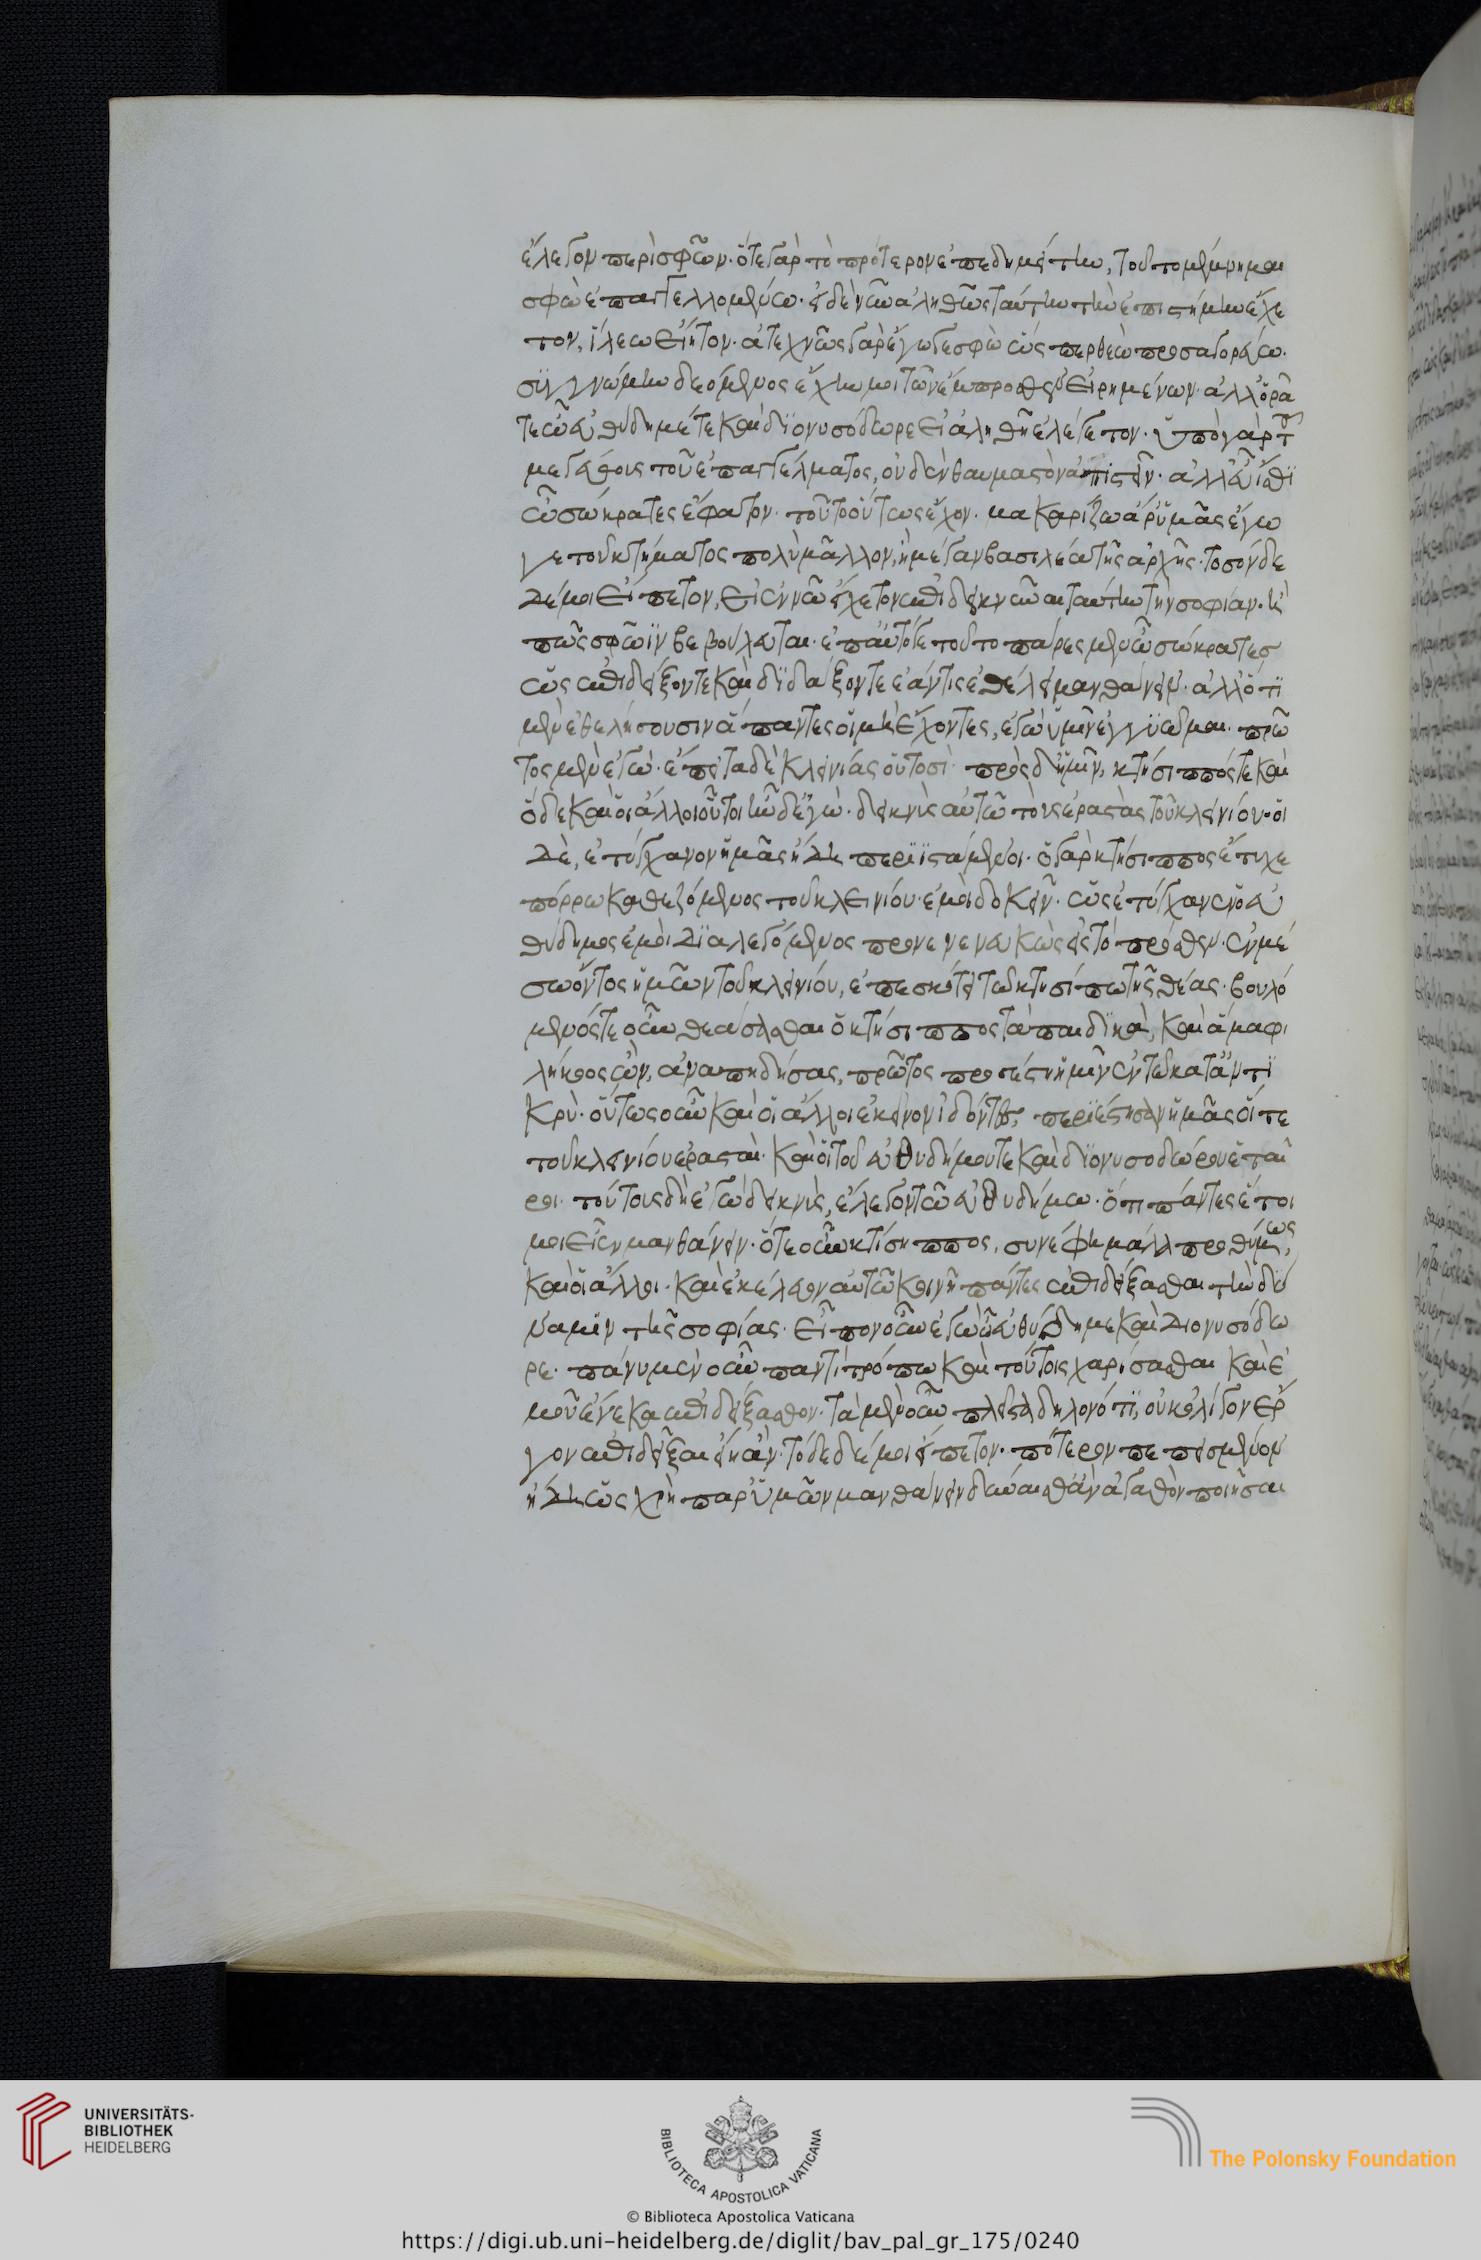 ἔλεγον περὶ σφῶν· ὅτε γὰρ τὸ πρότερον ἐπεδημείτην, τοῦτο μέμνημαι
σφὼ ἐπαγγελλομένω· εἰ δὲ νῦν ἀληθῶς ταύτην τὴν ἐπιστήμην ἔχε
τον, ἵλεω εἴητον· ἀτεχνῶς γὰρ ἔγωγε σφὼ ὥσπερ θεὼ προσαγορεύω·
συγγνώμην δεόμενος ἔχειν μοι τῶν ἔμπροσθεν εἰρημένων· ἀλλ' ὁρᾶ
τε ὦ εὐθύδημέ τε καὶ διονυσόδωρε εἰ ἀληθῆ ἐλέγετον· ὑπὸ γὰρ τοῦ
μεγέθους τοῦ ἐπαγγέλματος, οὐδὲν θαυμαστὸν ἀπιστεῖν· ἀλλ' εὖ ἴσθι
ὦ σώκρατες ἔφατον· τοῦτο οὕτως ἔχον· μακαρίζω ἄρ' ὑμᾶς ἔγω
γε τοῦ κτήματος πολὺ μᾶλλον, ἢ μέγαν βασιλέα τῆς ἀρχῆς· τοσόνδε
δέ μοι εἴπετον, εἰ ἐν νῷ ἔχετον ἐπιδεικνύναι ταύτην τὴν σοφίαν· ἢ
πῶς σφῶϊν βεβούλευται· ἐπ' αὐτό γε τοῦτο πάρεσμεν ὦ σώκρατες
ὡς ἐπιδείξοντε καὶ διδάξοντε ἐάν τις ἐθέλει μανθάνειν· ἀλλ' ὅτι
μὲν ἐθελήσουσιν ἅπαντες οἱ μὴ ἔχοντες, ἐγὼ ὑμῖν ἐγγυῶμαι· πρῶ
τος μὲν ἐγώ· ἔπειτα δὲ κλεινίας οὑτοσί· πρὸς δ' ἡμῖν, κτήσιππός τε καὶ
ὅδε καὶ οἱ ἄλλοι οὗτοι ἦν δ' ἐγώ· δεικνὺς αὐτῷ τοὺς ἐραστὰς τοῦ κλεινίου· οἱ
δὲ, ἐτύγχανον ἡμᾶς ἤδη περιϊστάμενοι· ὁ γὰρ κτήσιππος ἔτυχε
πόρρω καθεζόμενος τοῦ κλεινίου· ἐμοὶ δοκεῖν· ὡς ἐτύγχανεν ὁ εὐ
θύδημος ἐμοὶ διαλεγόμενος προνενευκὼς εἰς τὸ πρόσθεν· ἐν μέ
σῳ ὄντος ἡμῶν τοῦ κλεινίου, ἐπεσκότει τῷ κτησίππῳ τῆς θέας· βουλό
μενός τε οὖν θεάσασθαι ὁ κτήσιππος τὰ παιδικὰ, καὶ ἅμα φι
λήκοος ὢν, ἀναπηδήσας, πρῶτος προσέστη ἡμῖν ἐν τῷ καταντι
κρύ· οὕτως οὖν καὶ οἱ ἄλλοι ἐκεῖνον ἰδόντες περιέστησαν ἡμᾶς οἵ τε
τοῦ κλεινίου ἐρασταί· καὶ οἱ τοῦ εὐθυδήμου τε καὶ διονυσοδώρου ἑταῖ
ροι· τούτους δὴ ἐγὼ δεικνὺς, ἔλεγον τῷ εὐθυδήμῳ· ὅτι πάντες ἕτοι
μοι εἶεν μανθάνειν· ὅ τε οὖν κτίσηππος, συνέφη μάλα προθύμως,
καὶ οἱ ἄλλοι· καὶ ἐκέλευον αὐτῷ κοινῇ πάντες ἐπιδείξασθαι τὴν δύ
ναμιν τῆς σοφίας· εἶπον οὖν ἐγὼ ὦ εὐθύδημε καὶ διονυσόδω
ρε· πάνυ μὲν οὖν παντὶ τρόπῳ καὶ τούτοις χαρίσασθαι καὶ ἐ
μοῦ ἕνεκα ἐπιδείξασθον· τὰ μὲν οὖν πλεῖστα δηλονότι, οὐκ ὀλίγον ἔρ
γον ἐπιδεῖξαι εἴη ἄν· τόδε δέ μοι εἴπετον· πότερον πεπεισμένον
ἤδη ὡς χρὴ παρ' ὑμῶν μανθάνειν δύναισθ' ἂν ἀγαθὸν ποιῆσαι
UNIVERSITÄTS-
BIBLIOTHEK
HEIDELBERG
BIBLIOTECA APOSTOLICA VATICANA
The Polonsky Foundation
© Biblioteca Apostolica Vaticana
https://digi.ub.uni-heidelberg.de/diglit/bav_pal_gr_175/0240